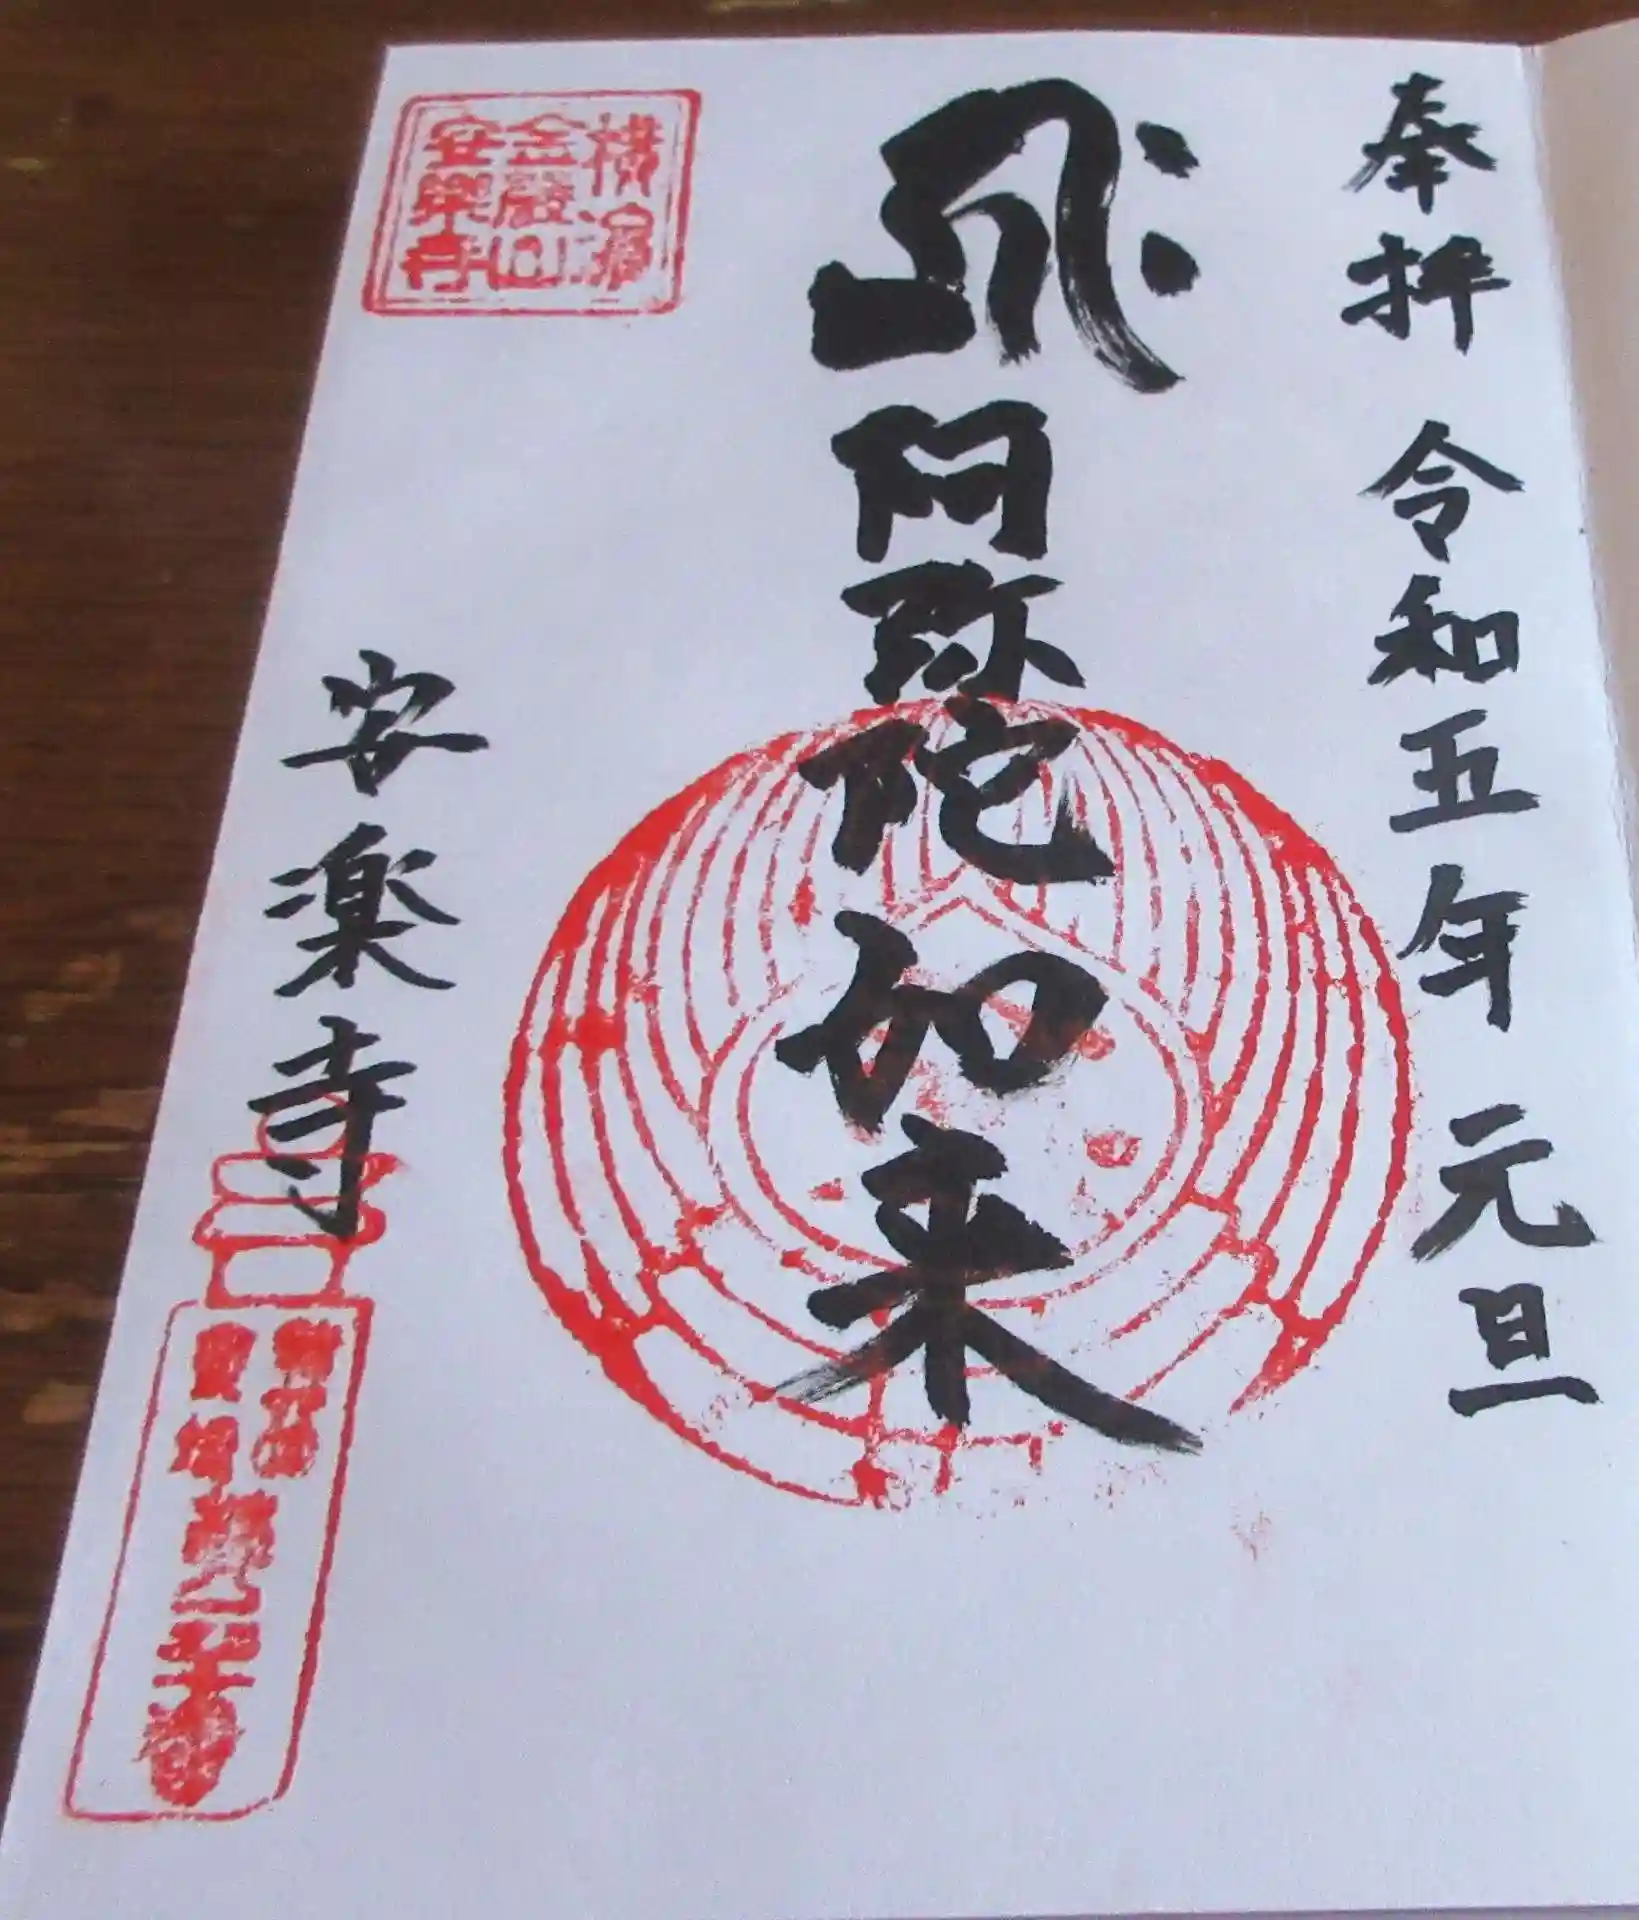 奉拝 令和五年 元旦
阿弥陀如来
安楽寺
横濱
金嚴山
安樂寺